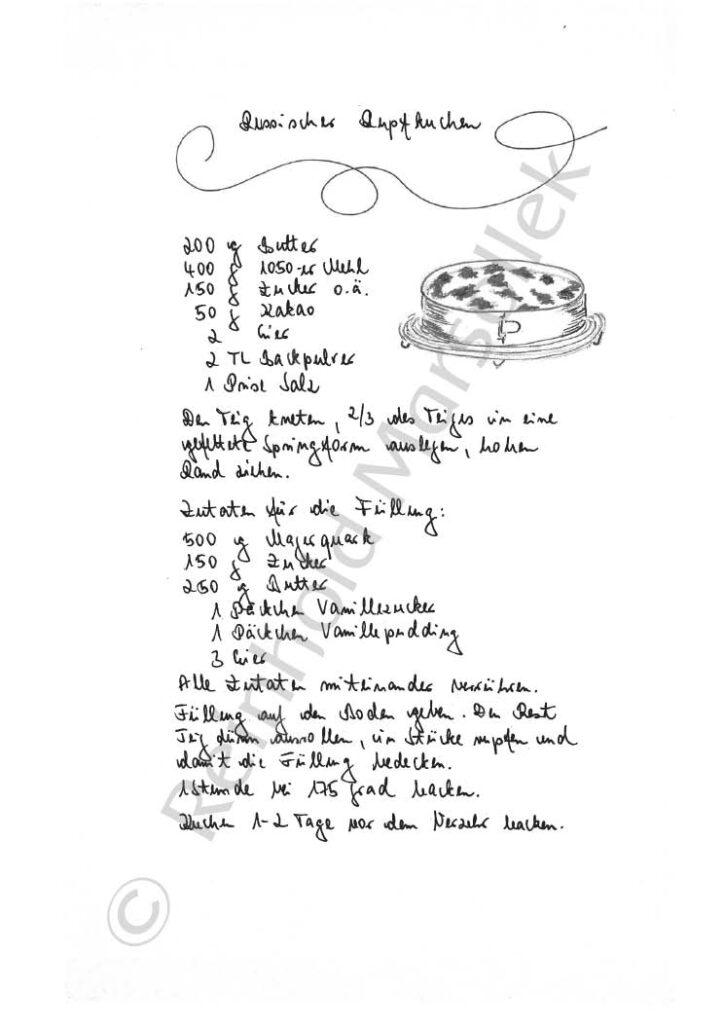 Russischer Rupfkuchen
200 g Butter
400 g 1050-er Mehl
150 g Zucker o.ä.
50 g Kakao
2 Eier
2 TL Backpulver
1 Prise Salz
Den Teig kneten, 2/3 des Teiges in eine
gefettete Springform auslegen, hohen
Rand ziehen.
Zutaten für die Füllung:
500 g Magerquark
150 g Zucker
250 g Butter
1 Päckchen Vanillezucker
1 Päckchen Vanillepudding
3 Eier
Alle Zutaten miteinander verrühren.
Füllung auf den Boden geben. Den Rest
Teig dünn ausrollen, in Stücke rupfen und
damit die Füllung bedecken.
1 Stunde bei 175 grad backen.
Kuchen 1-2 Tage vor dem Verzehr backen.
© Reinhold Marsollek